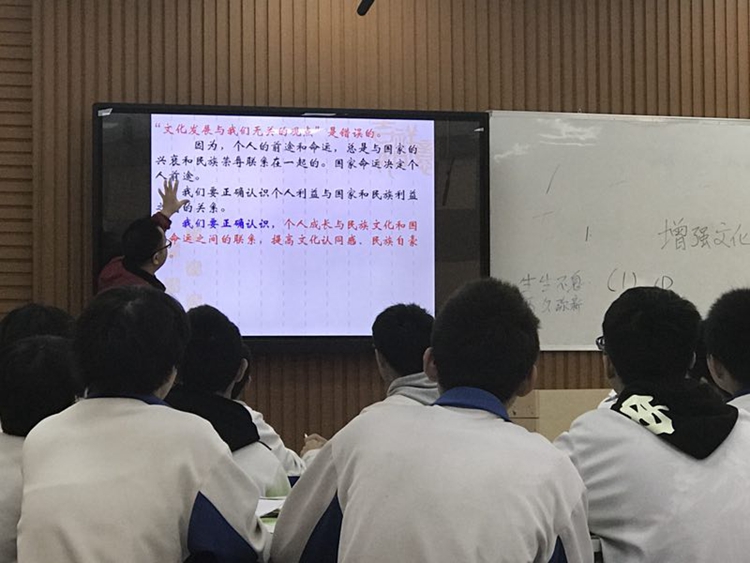 “文化发展与我们无关的观点”是错误的。
因为，个人的前途和命运，总是与国家的
兴衰和民族荣辱联系在一起的。国家命运决定个
人前途。
我们要正确认识个人利益与国家和民族利益
的关系。
我们要正确认识，个人成长与民族文化和国
命运之间的联系，提高文化认同感、民族自豪
增强文化
生生不息
(1)